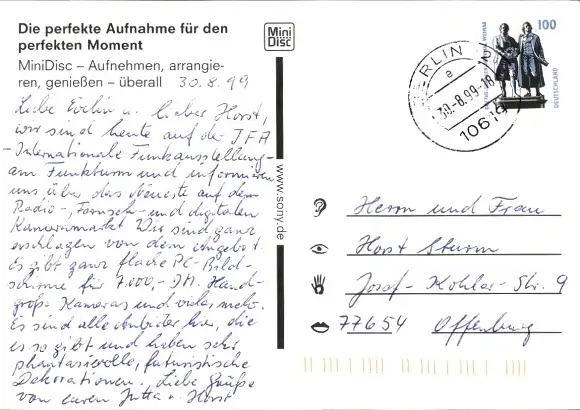 Die perfekte Aufnahme für den
perfekten Moment
MiniDisc – Aufnehmen, arrangie-
ren, genießen – überall 30.8.99
Liebe Evelin u. lieber Horst,
wir sind heute auf der IFA
-Internationale Funkausstellung-
am Funkturm und informieren
uns über das Neueste auf dem
Radio-, Fernseh- und digitalen
Kameramarkt. Wir sind ganz
erschlagen von dem Angebot.
Es gibt ganz flache PC-Bild-
schirme für 7.000,- DM. Hand-
große Kameras und vieles mehr.
Es sind alle Anbieter hier, die
es so gibt und haben sehr
phantasievolle, futuristische
Dekorationen. Liebe Grüße
von euren Jutta u. Horst
Mini
Disc
www.sony.de
BERLIN
e
30.-8.99-18
10619
100
DEUTSCHLAND
Herrn und Frau
Horst Sturm
Josef-Kohler-Str. 9
77654 Offenburg